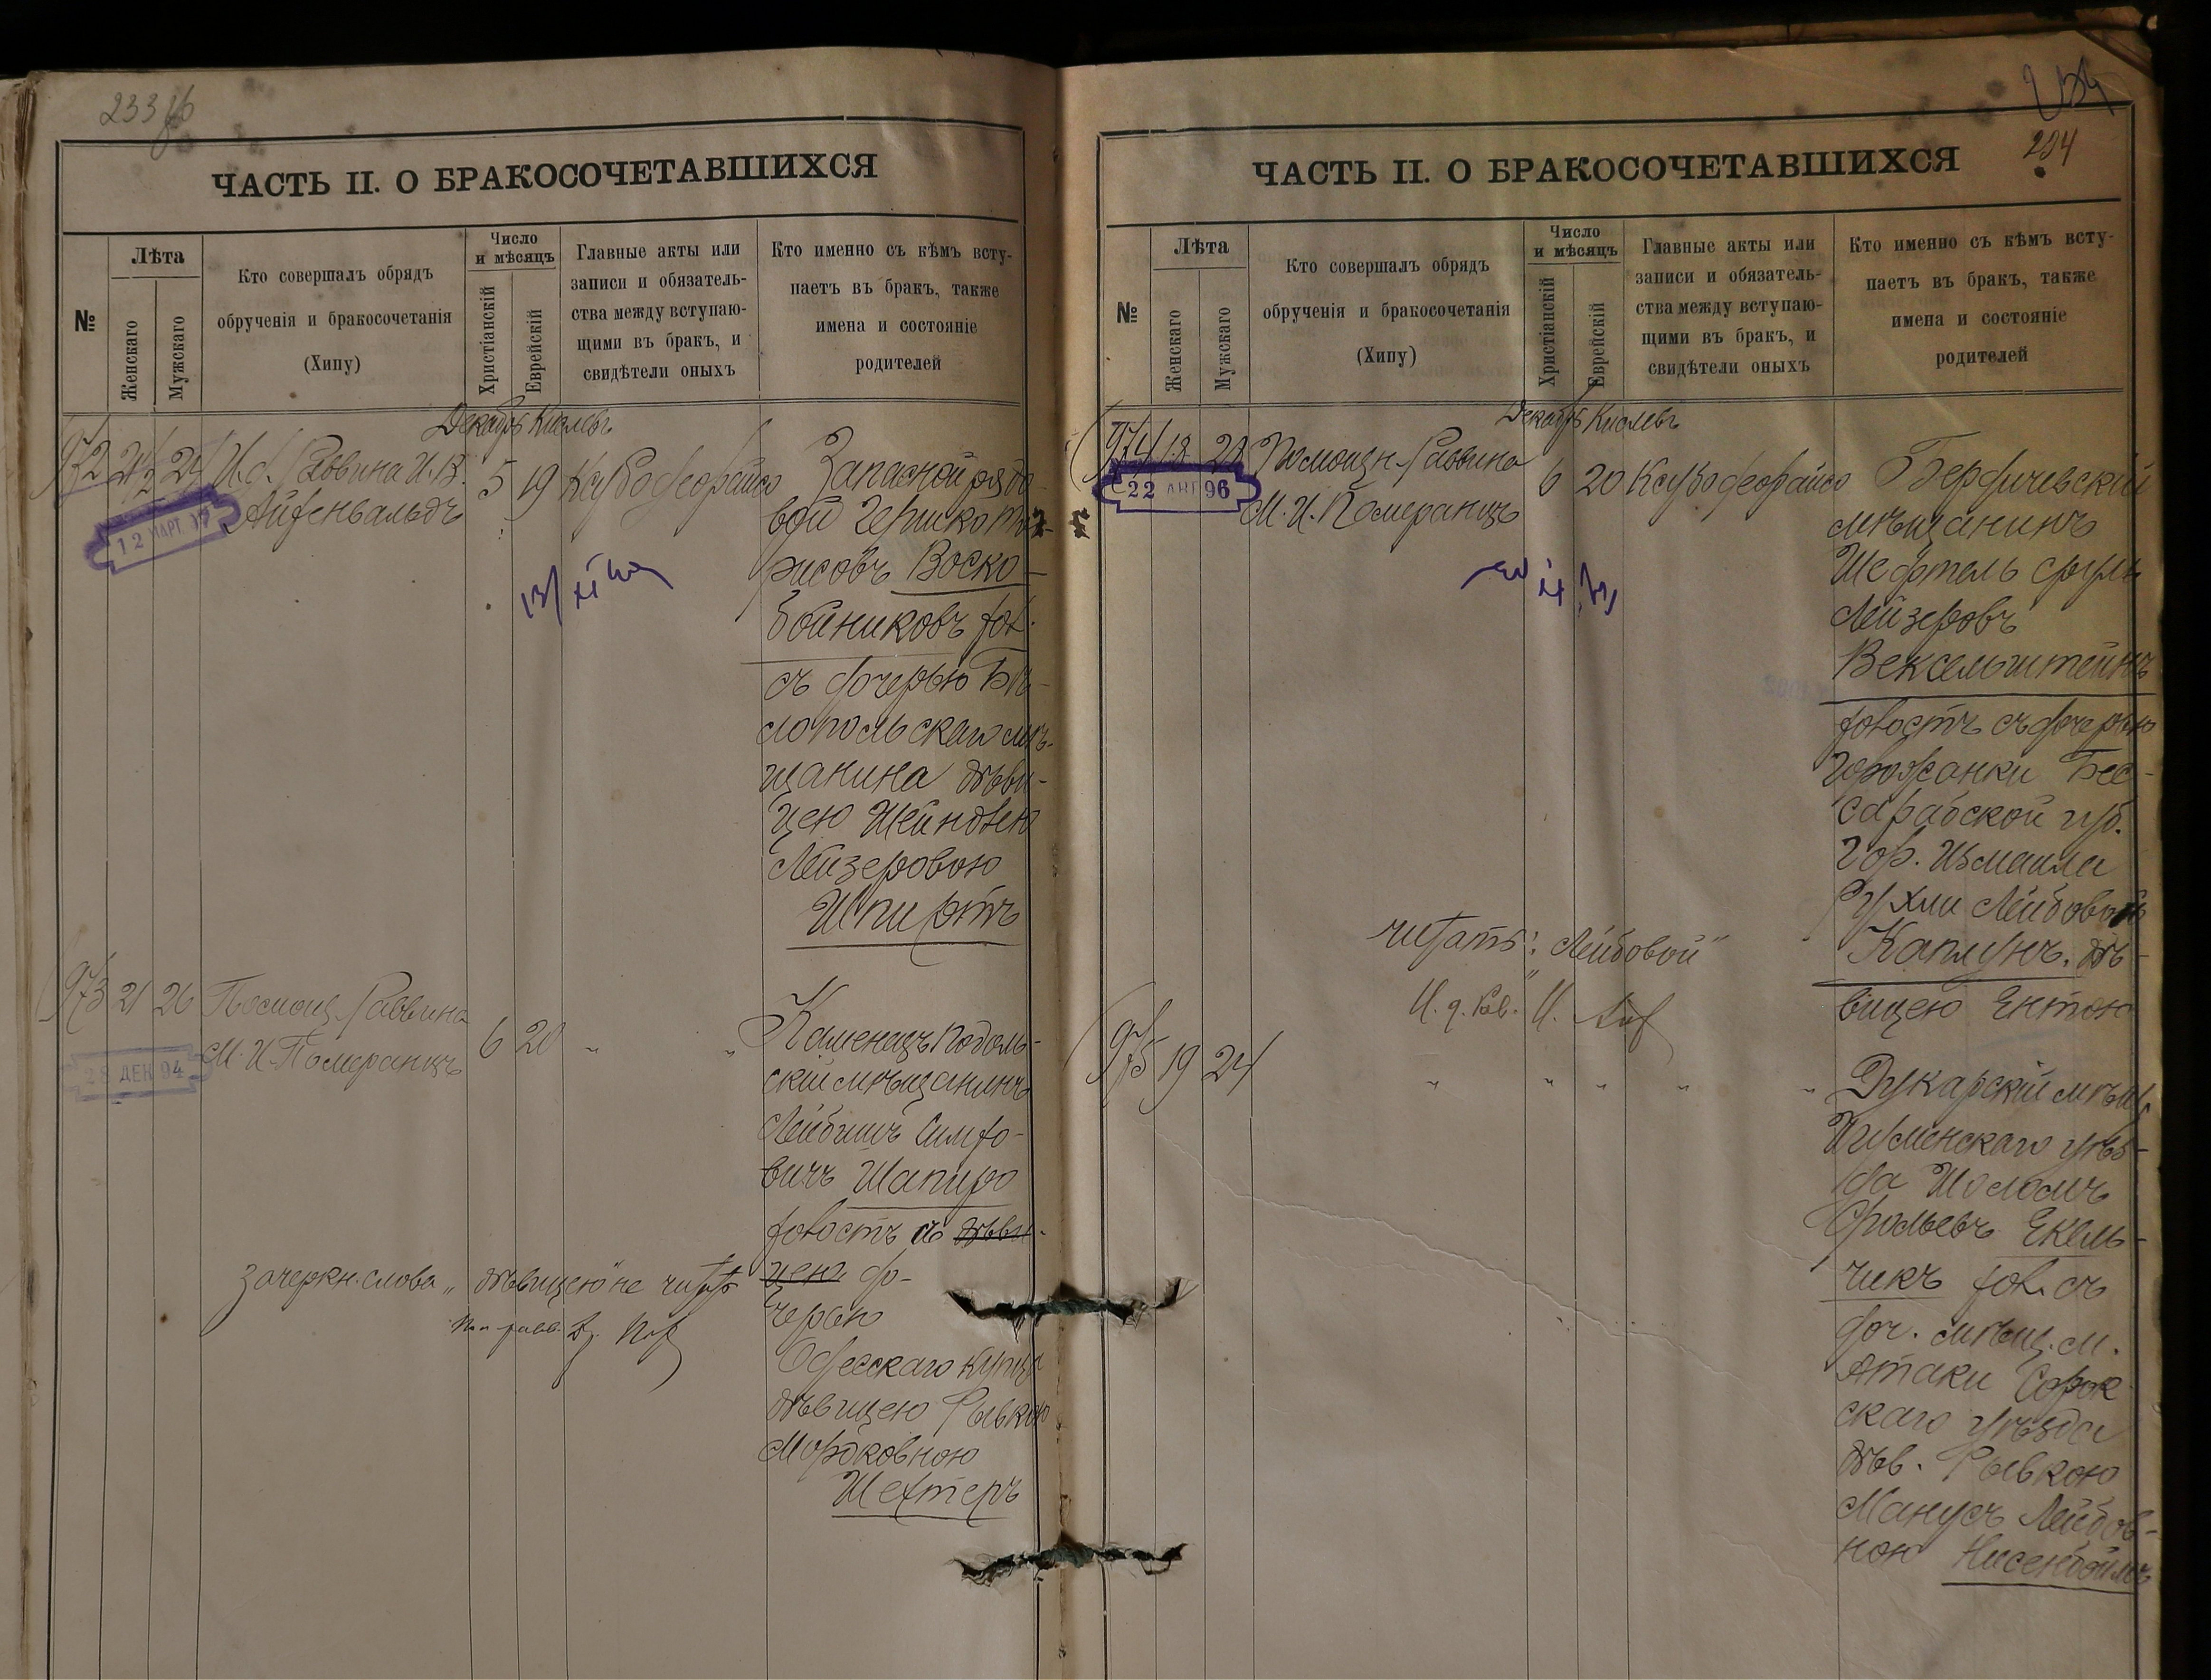 ЧАСТЬ II. О БРАКОСОЧЕТАВШИХСЯ
№
Лѣта
Женскаго
Мужскаго
Кто совершалъ обрядъ
обрученія и бракосочетанія
(Хипу)
Число
и мѣсяцъ
Христіанскій
Еврейскій
Главные акты или
записи и обязатель-
ства между вступаю-
щими въ бракъ, и
свидѣтели оныхъ
Кто именно съ кѣмъ всту-
паетъ въ бракъ, также
имена и состояніе
родителей
Декабрь Кислевъ
972 24 И. д. Раввина И. В.
Айзенвальдъ
5 19
12 МАРТ
Запасной рядо-
вой Гершко
рисовъ Воско-
бойниковъ хол.
съ дочерью Бѣ-
лопольскаго мѣ-
щанина дѣви-
цею Шейндлею
Лейзеровою
Шпиртъ
973 21 26 Помощ. Раввина
М. И. Померанцъ
6 20 " "
28 ДЕК 94
Каменецъ Подоль-
скій мѣщанинъ
Лейбишъ
вичъ Шапиро
холостъ съ дѣви-
цею до-
черью
Одесскаго купца
дѣвицею Рывкою
Мордковною
Шехтеръ
Зачеркн. слова "дѣвицею" не читать
ЧАСТЬ II. О БРАКОСОЧЕТАВШИХСЯ
234
№
Лѣта
Женскаго
Мужскаго
Кто совершалъ обрядъ
обрученія и бракосочетанія
(Хипу)
Число
и мѣсяцъ
Христіанскій
Еврейскій
Главные акты или
записи и обязатель-
ства между вступаю-
щими въ бракъ, и
свидѣтели оныхъ
Кто именно съ кѣмъ всту-
паетъ въ бракъ, также
имена и состояніе
родителей
Декабрь Кислевъ
974 18 28 Помощн. Раввина
М. И. Померанцъ
6 20
22 АВГ 96
Бердичевскій
мѣщанинъ
Шефтель Сруль
Лейзеровъ
Вексельштейнъ
холостъ съ дочерью
горожанки Бес-
сарабской губ.
гор. Измаила
Рухли Лейбовой
Каплунъ, дѣ-
вицею Ентою
читать: "Лейбовой"
И. д. Рав. И.
975 19 24 " " " " "
Дукарскій мѣщ.
Игуменскаго уѣз-
да Шоломъ
Срольевъ Екель-
чикъ хол. съ
доч. мѣщ. м.
Атаки Сорок-
скаго уѣзда
дѣв. Рывкою
Манусъ Лейбов-
ною Нисенбоймъ